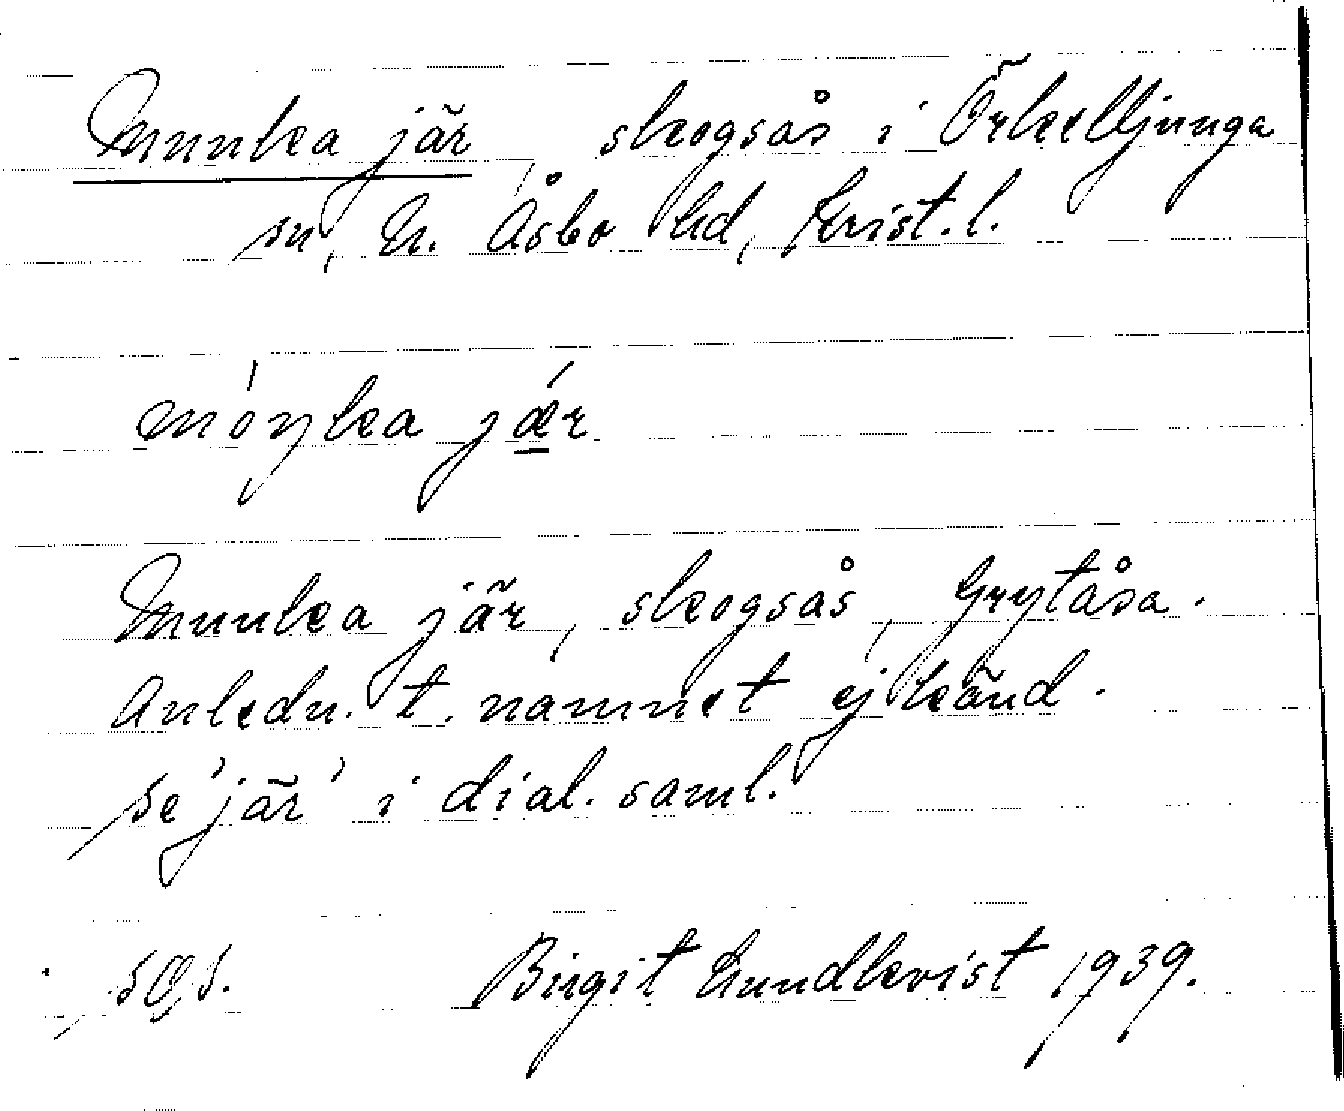 Munka jär, skogsås i Örkelljunga
sn, N. Åsbo hd, Krist. l.
móŋka jǽr
Munka jär, skogsås, Grytåsa.
Anledn. t. namnet ej känd.
se 'jär' i dial. saml.
Birgit Lundkvist 1939.